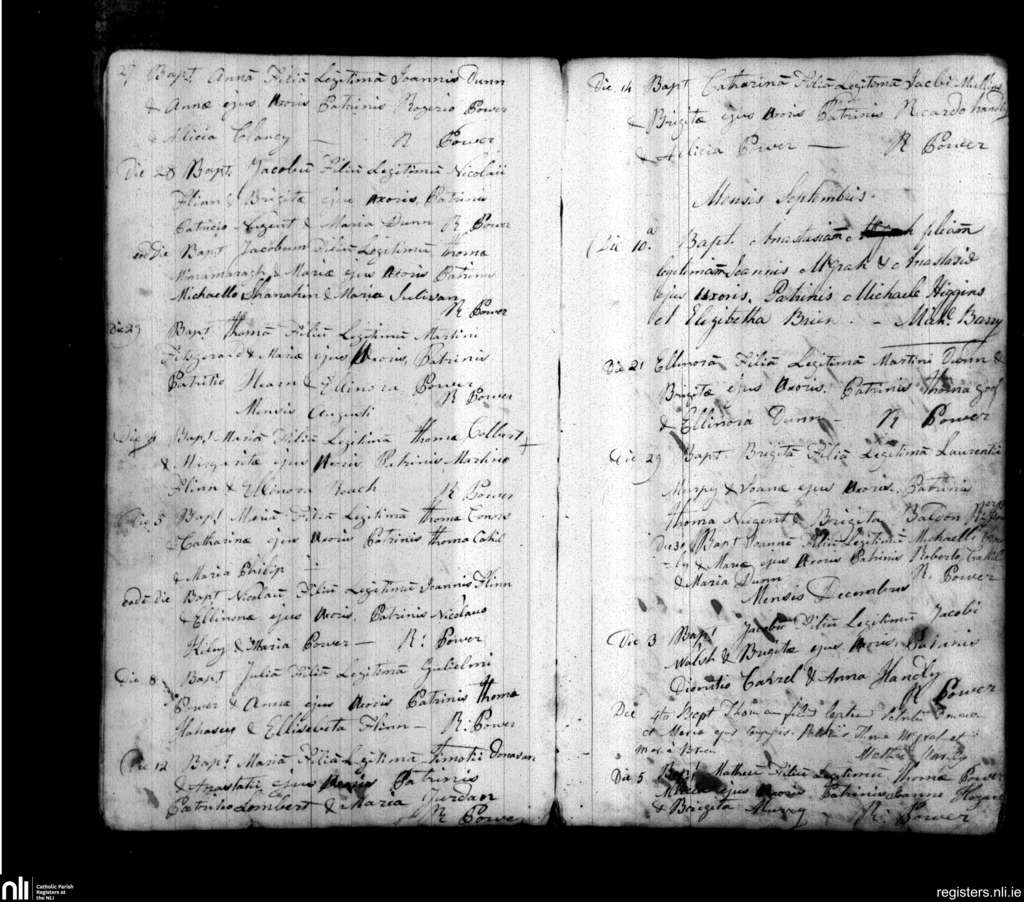 27 Bapt Annā Filiā Legitimā Joannis Dunn
& Annæ ejus Uxoris Patrinis Rogerio Power
& Alicia Clancy — R Power
Die 28 Bapt Jacobū Filiū Legitimū Nicolaii
Flinn & Brigitæ ejus Uxoris, Patrinis
Patricio Nugent & Maria Dunn R Power
eod Die Bapt Jacobum Filiū Legitimū Thoma
& Mariæ ejus Uxoris Patrinis
Michaello Shanahan & Maria Sulivan
R Power
Die 29 Bapt Thomā Filiū Legitimū Martini
Fitzgerard & Mariæ ejus Uxoris, Patrinis
Patritio Hearn & Ellinora Power
R Power
Mensis Augusti
Die 4 Bapt Mariā Filiā Legitimā Thoma Colbert
& Margaritæ ejus Uxoris, Patrinis Martino
Flinn & Elinora Roach R Power
Die 5 Bapt Mariā Filiā Legitimā Thoma
& Catharinæ ejus Uxoris Patrinis Thoma
& Maria Philip —
eodē die Bapt Nicolaū Filiū Legitimū Joannis Flinn
& Ellinoræ ejus Uxoris, Patrinis Nicolaus
& Maria Power — R: Power
Die 8 Bapt Juliā Filiā Legitimā Gulielmi
Power & Annæ ejus Uxoris Patrinis Thoma
& Ellisabeta Flinn — R: Power
Die 12 Bapt Mariā Filiā Legitimā Timotii Donavan
& Anastatiæ ejus Uxoris Patrinis
Patritio Lambert & Maria Jurdan
R Power
Die 14 Bapt Catharinā Filiā Legitimā Jacobi
& Brigitæ ejus Uxoris Patrinis Ricardo Handly
& Alicia Power — R Power
Mensis Septembris.
Die 10.a Bapt. Anastasiam filiam
legitimam Joannis McGrath & Anastasiæ
ejus Uxoris. Patrinis Michaele Higgins
et Elizibetha Brien. — Michl. Barry
Die 21 Ellinorā Filiā Legitimā Martini Dunn &
Brigitæ ejus Uxoris. Patrinis Thoma
& Ellinora Dunn — R Power
Die 29 Bapt Brigitā Filiā Legitimā Laurentii
Murpy & Joanæ ejus Uxoris, Patrinis
Thoma Nugent & Brigita
Die 30 Bapt Joannē Filiū Legitimū Michaelli
& Mariæ ejus Uxoris Patrinis Roberto
& Maria Dunn R. Power
Mensis Decembris
Die 3 Bapt Jacobū Filiū Legitimū Jacobi
Walsh & Brigitæ ejus Uxoris Patrinis
Dionitio & Anna Handly
R Power
Die 4to Bapt Thomam
et Maria ejus
Die 5 Bapt Matheū Filiū Legitimū Thoma Power
& Maria ejus Uxoris Patrinis Joanne Hogan
& Brigita Murray R: Power
nli Catholic Parish
Registers at
the NLI
registers.nli.ie